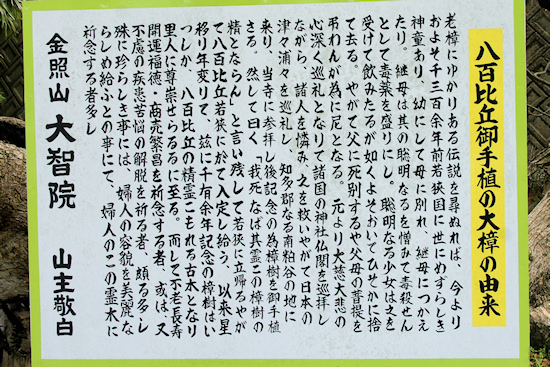 八百比丘御手植の大樟の由来
老樟にゆかりある伝説を尋ぬれば、今より
およそ千三百余年前若狭国に世にめずらしき
神童あり 幼にして母に別れ、継母につかえ
たり。継母は其の聡明なるを憎みて毒殺せん
として毒薬を盛りにし。聡明なる少女は之を
受けて飲みたるが如くよそおいてひそかに捨
て去る。やがて父に死別するや父の菩提を
弔わんが為に尼となる。元より大慈大悲の
心深く巡礼となりて諸国の神社仏閣を巡拝し
ながら、諸人を憐み之を救いやがて日本の
津々浦々を巡礼し、知多郡なる南粕谷の地に
来り、当寺に参拝し後記念の為樟樹を御手植
さる。然して曰く、「我死なば其霊この樟樹の
精とならん」と言い残して若狭に立帰るやが
て八百比丘若狭に於て入定し給う、以来星
移り年変りて、茲に千有余年記念の樟樹はい
つしか、八百比丘の精霊こもれる古木となり
里人に尊崇せらるるに至る。而して不老長寿
開運福徳・商売繁昌を祈念する者、或は、又
不慮の疾患苦悩の解脱を祈る者、頗る多し
殊に珍らしき事には、婦人の容貌を美麗な
らしめ給ふとの事にて、婦人のこの霊木に
祈念する者多し
金照山 大智院 山主敬白